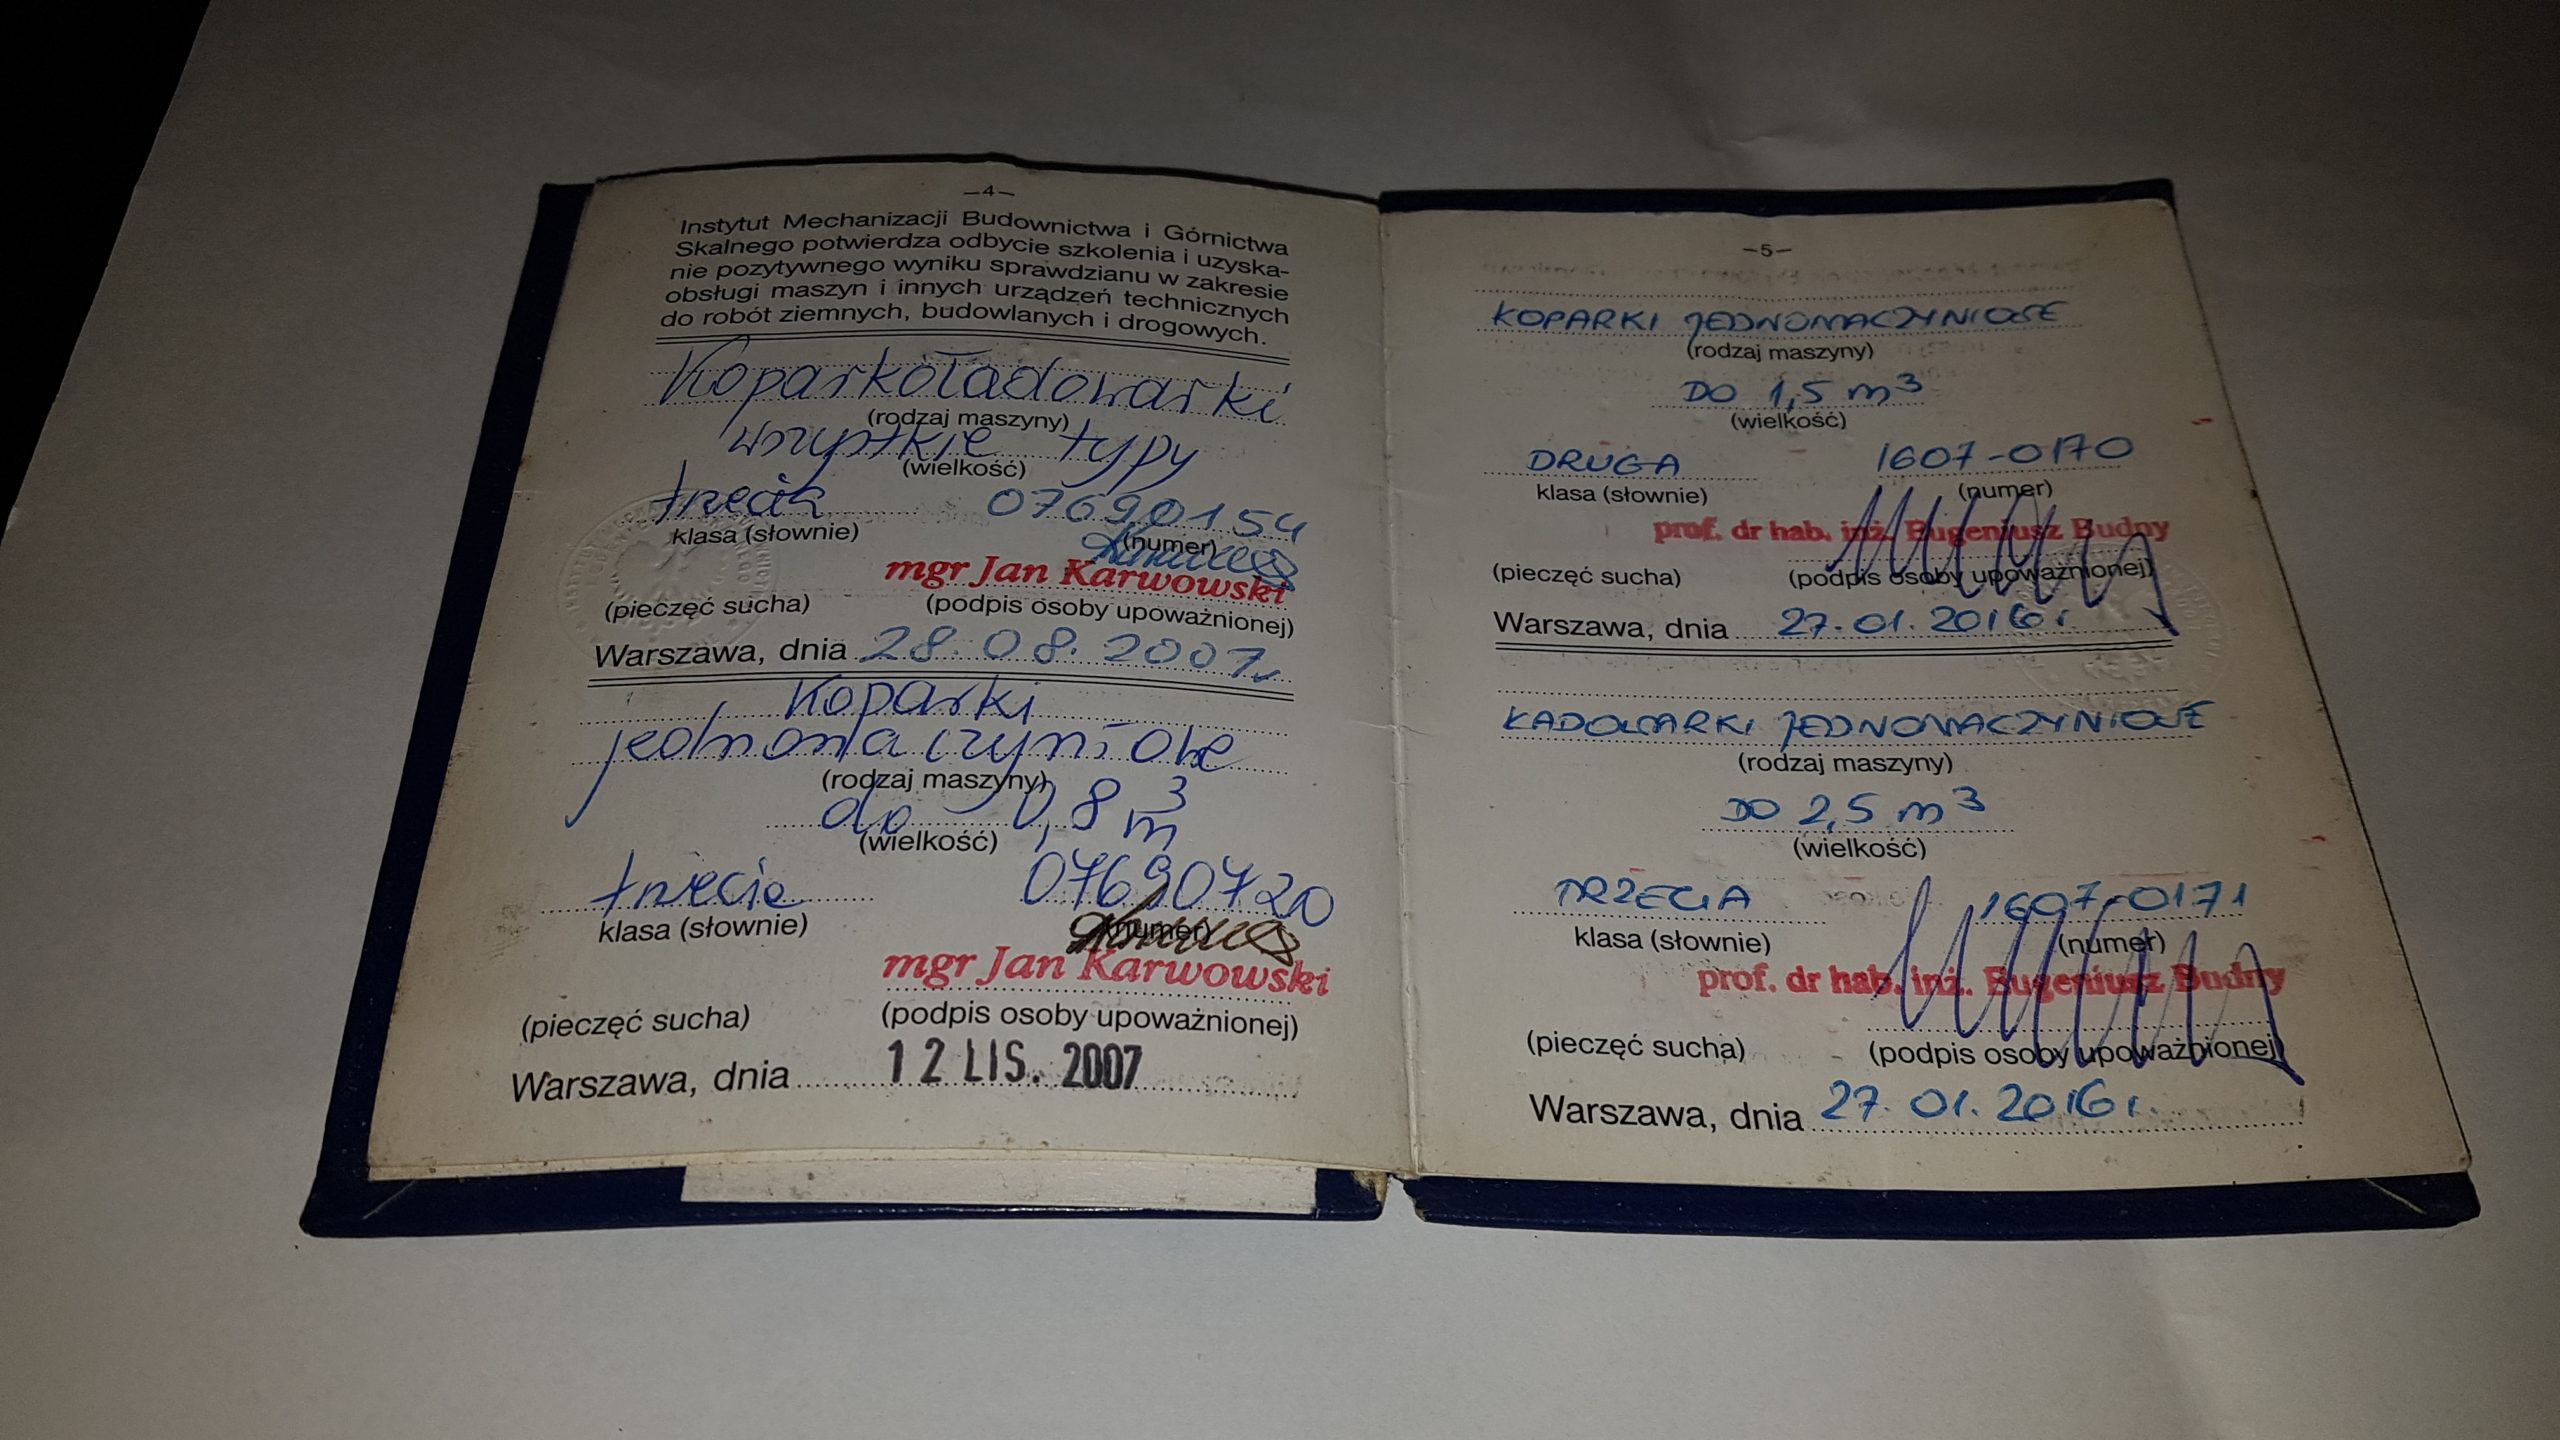 —4—
Instytut Mechanizacji Budownictwa i Górnictwa
Skalnego potwierdza odbycie szkolenia i uzyska-
nie pozytywnego wyniku sprawdzianu w zakresie
obsługi maszyn i innych urządzeń technicznych
do robót ziemnych, budowlanych i drogowych.
Koparkoładowarki
(rodzaj maszyny)
wszystkie typy
(wielkość)
trzecia 07690154
klasa (słownie) (numer)
mgr Jan Karwowski
(pieczęć sucha) (podpis osoby upoważnionej)
Warszawa, dnia 28.08.2007r
Koparki
jednonaczyniowe
(rodzaj maszyny)
do 0,8 m³
(wielkość)
trzecia 07690720
klasa (słownie) (numer)
mgr Jan Karwowski
(pieczęć sucha) (podpis osoby upoważnionej)
Warszawa, dnia 12 LIS. 2007
—5—
KOPARKI JEDNONACZYNIOWE
(rodzaj maszyny)
DO 1,5 m³
(wielkość)
DRUGA 1607-0170
klasa (słownie) (numer)
prof. dr hab. inż. Eugeniusz Budny
(pieczęć sucha) (podpis osoby upoważnionej)
Warszawa, dnia 27.01.2016r.
ŁADOWARKI JEDNONACZYNIOWE
(rodzaj maszyny)
DO 2,5 m³
(wielkość)
TRZECIA 1607-0171
klasa (słownie) (numer)
prof. dr hab. inż. Eugeniusz Budny
(pieczęć sucha) (podpis osoby upoważnionej)
Warszawa, dnia 27.01.2016r.